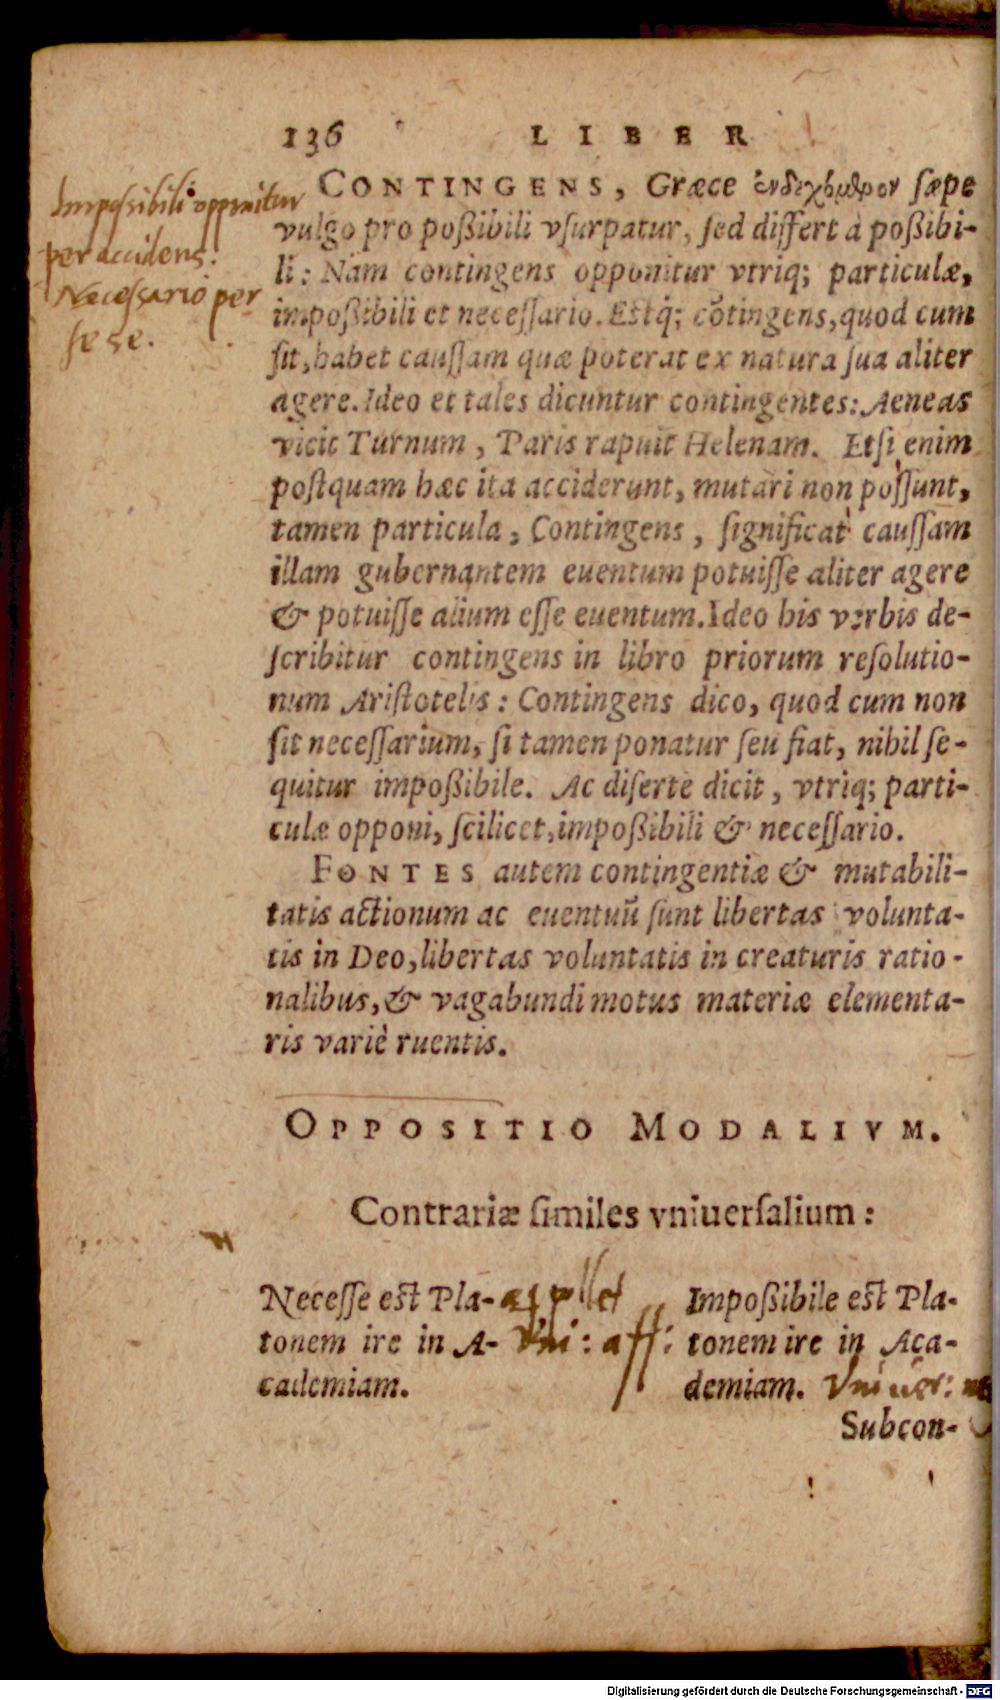 136 LIBER
Impossibili opponitur
per accidens.
Necessario per
se se.
CONTINGENS, Græce ἐνδεχόμενον sæpe
vulgo pro poßibili vſurpatur, ſed differt à poßibi-
li: Nam contingens opponitur vtriq; particulæ,
impoßibili et neceſſario. Eſtq́; cōtingens, quod cum
ſit, habet cauſſam quæ poterat ex natura ſua aliter
agere. Ideo et tales dicuntur contingentes: Aeneas
vicit Turnum, Paris rapuit Helenam. Etſi enim
poſtquam hæc ita acciderunt, mutari non poſſunt,
tamen particula, Contingens, ſignificat cauſſam
illam gubernantem euentum potuiſſe aliter agere
& potuiſſe alium eſſe euentum. Ideo his verbis de-
ſcribitur contingens in libro priorum reſolutio-
num Ariſtotelis: Contingens dico, quod cum non
ſit neceſſarium, ſi tamen ponatur ſeu fiat, nihil ſe-
quitur impoßibile. Ac diſerte dicit, vtriq; parti-
culæ opponi, ſcilicet, impoßibili & neceſſario.
FONTES autem contingentiæ & mutabili-
tatis actionum ac euentuũ ſunt libertas volunta-
tis in Deo, libertas voluntatis in creaturis ratio-
nalibus, & vagabundi motus materiæ elementa-
ris variè ruentis.
OPPOSITIO MODALIVM.
Contrariæ ſimiles vniuerſalium:
Neceſſe eſt Pla-
tonem ire in A- Vni: aff:
cademiam.
Impoßibile eſt Pla-
tonem ire in Aca-
demiam. Vniuer:
Subcon-
Digitalisierung gefördert durch die Deutsche Forschungsgemeinschaft - DFG